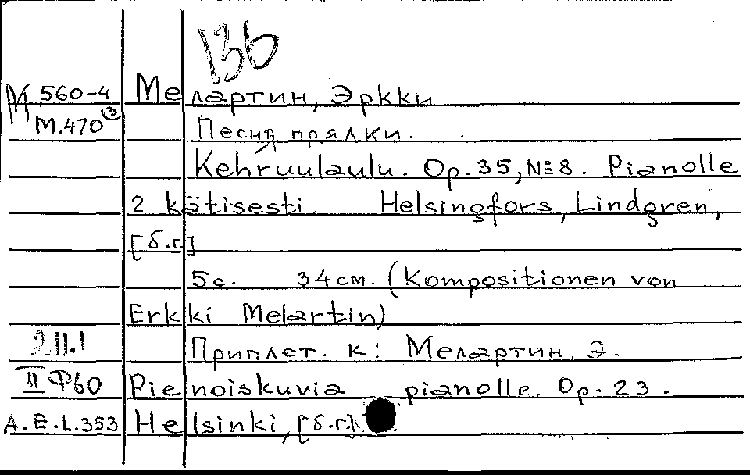 136
М 560-4 Мелартин, Эркки
М.470 ③ Песня прялки.
Kehruulaulu. Op. 35, № 8. Pianolle
2 kätisesti Helsingfors, Lindgren,
[б.г.]
5с. 34 см. (Kompositionen von
Erkki Melartin)
9.II.1 Приплет. к: Мелартин, Э.
II Ф60 Pienoiskuvia pianolle. Op. 23.
A.E.L.353 Helsinki, [б.г.].